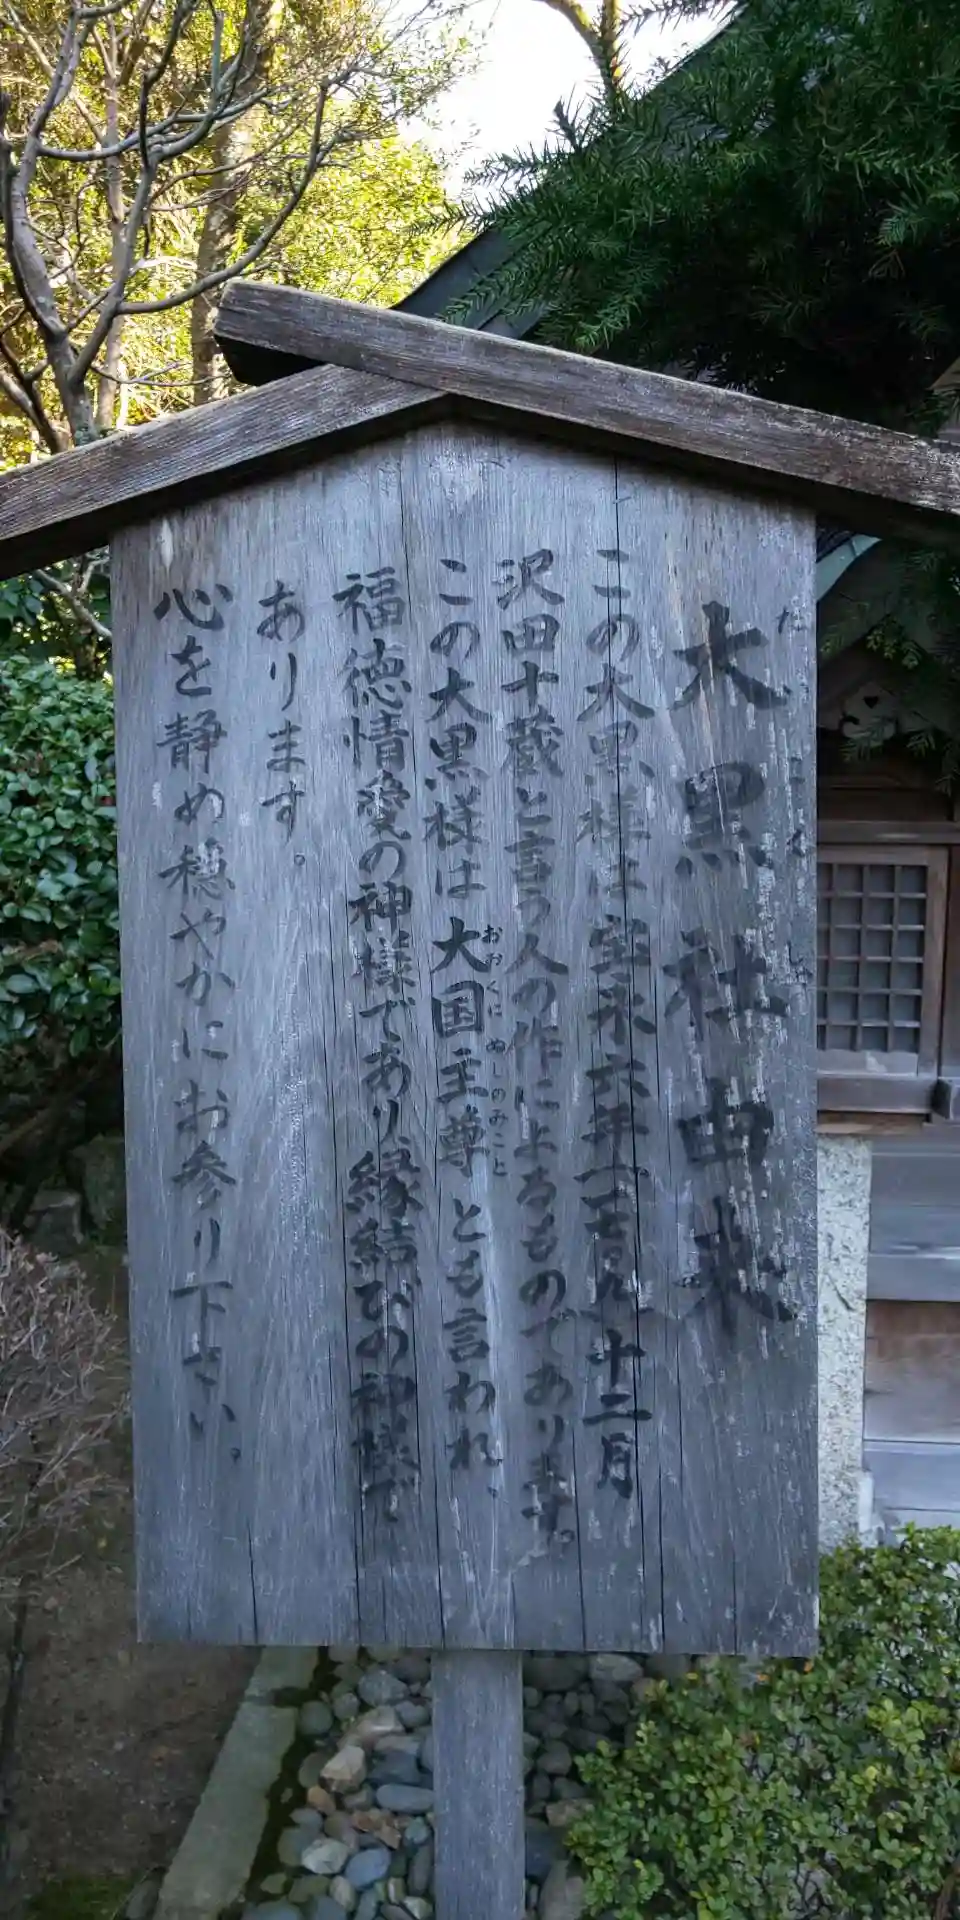 大黒社由来
この大黒様は宝永六年(一七〇九)十二月
沢田十蔵と言う人の作によるものであります。
この大黒様は大国主尊とも言われ、
おおくにぬしのみこと
福徳情愛の神様であり、縁結びの神様で
あります。
心を静め穏やかにお参り下さい。